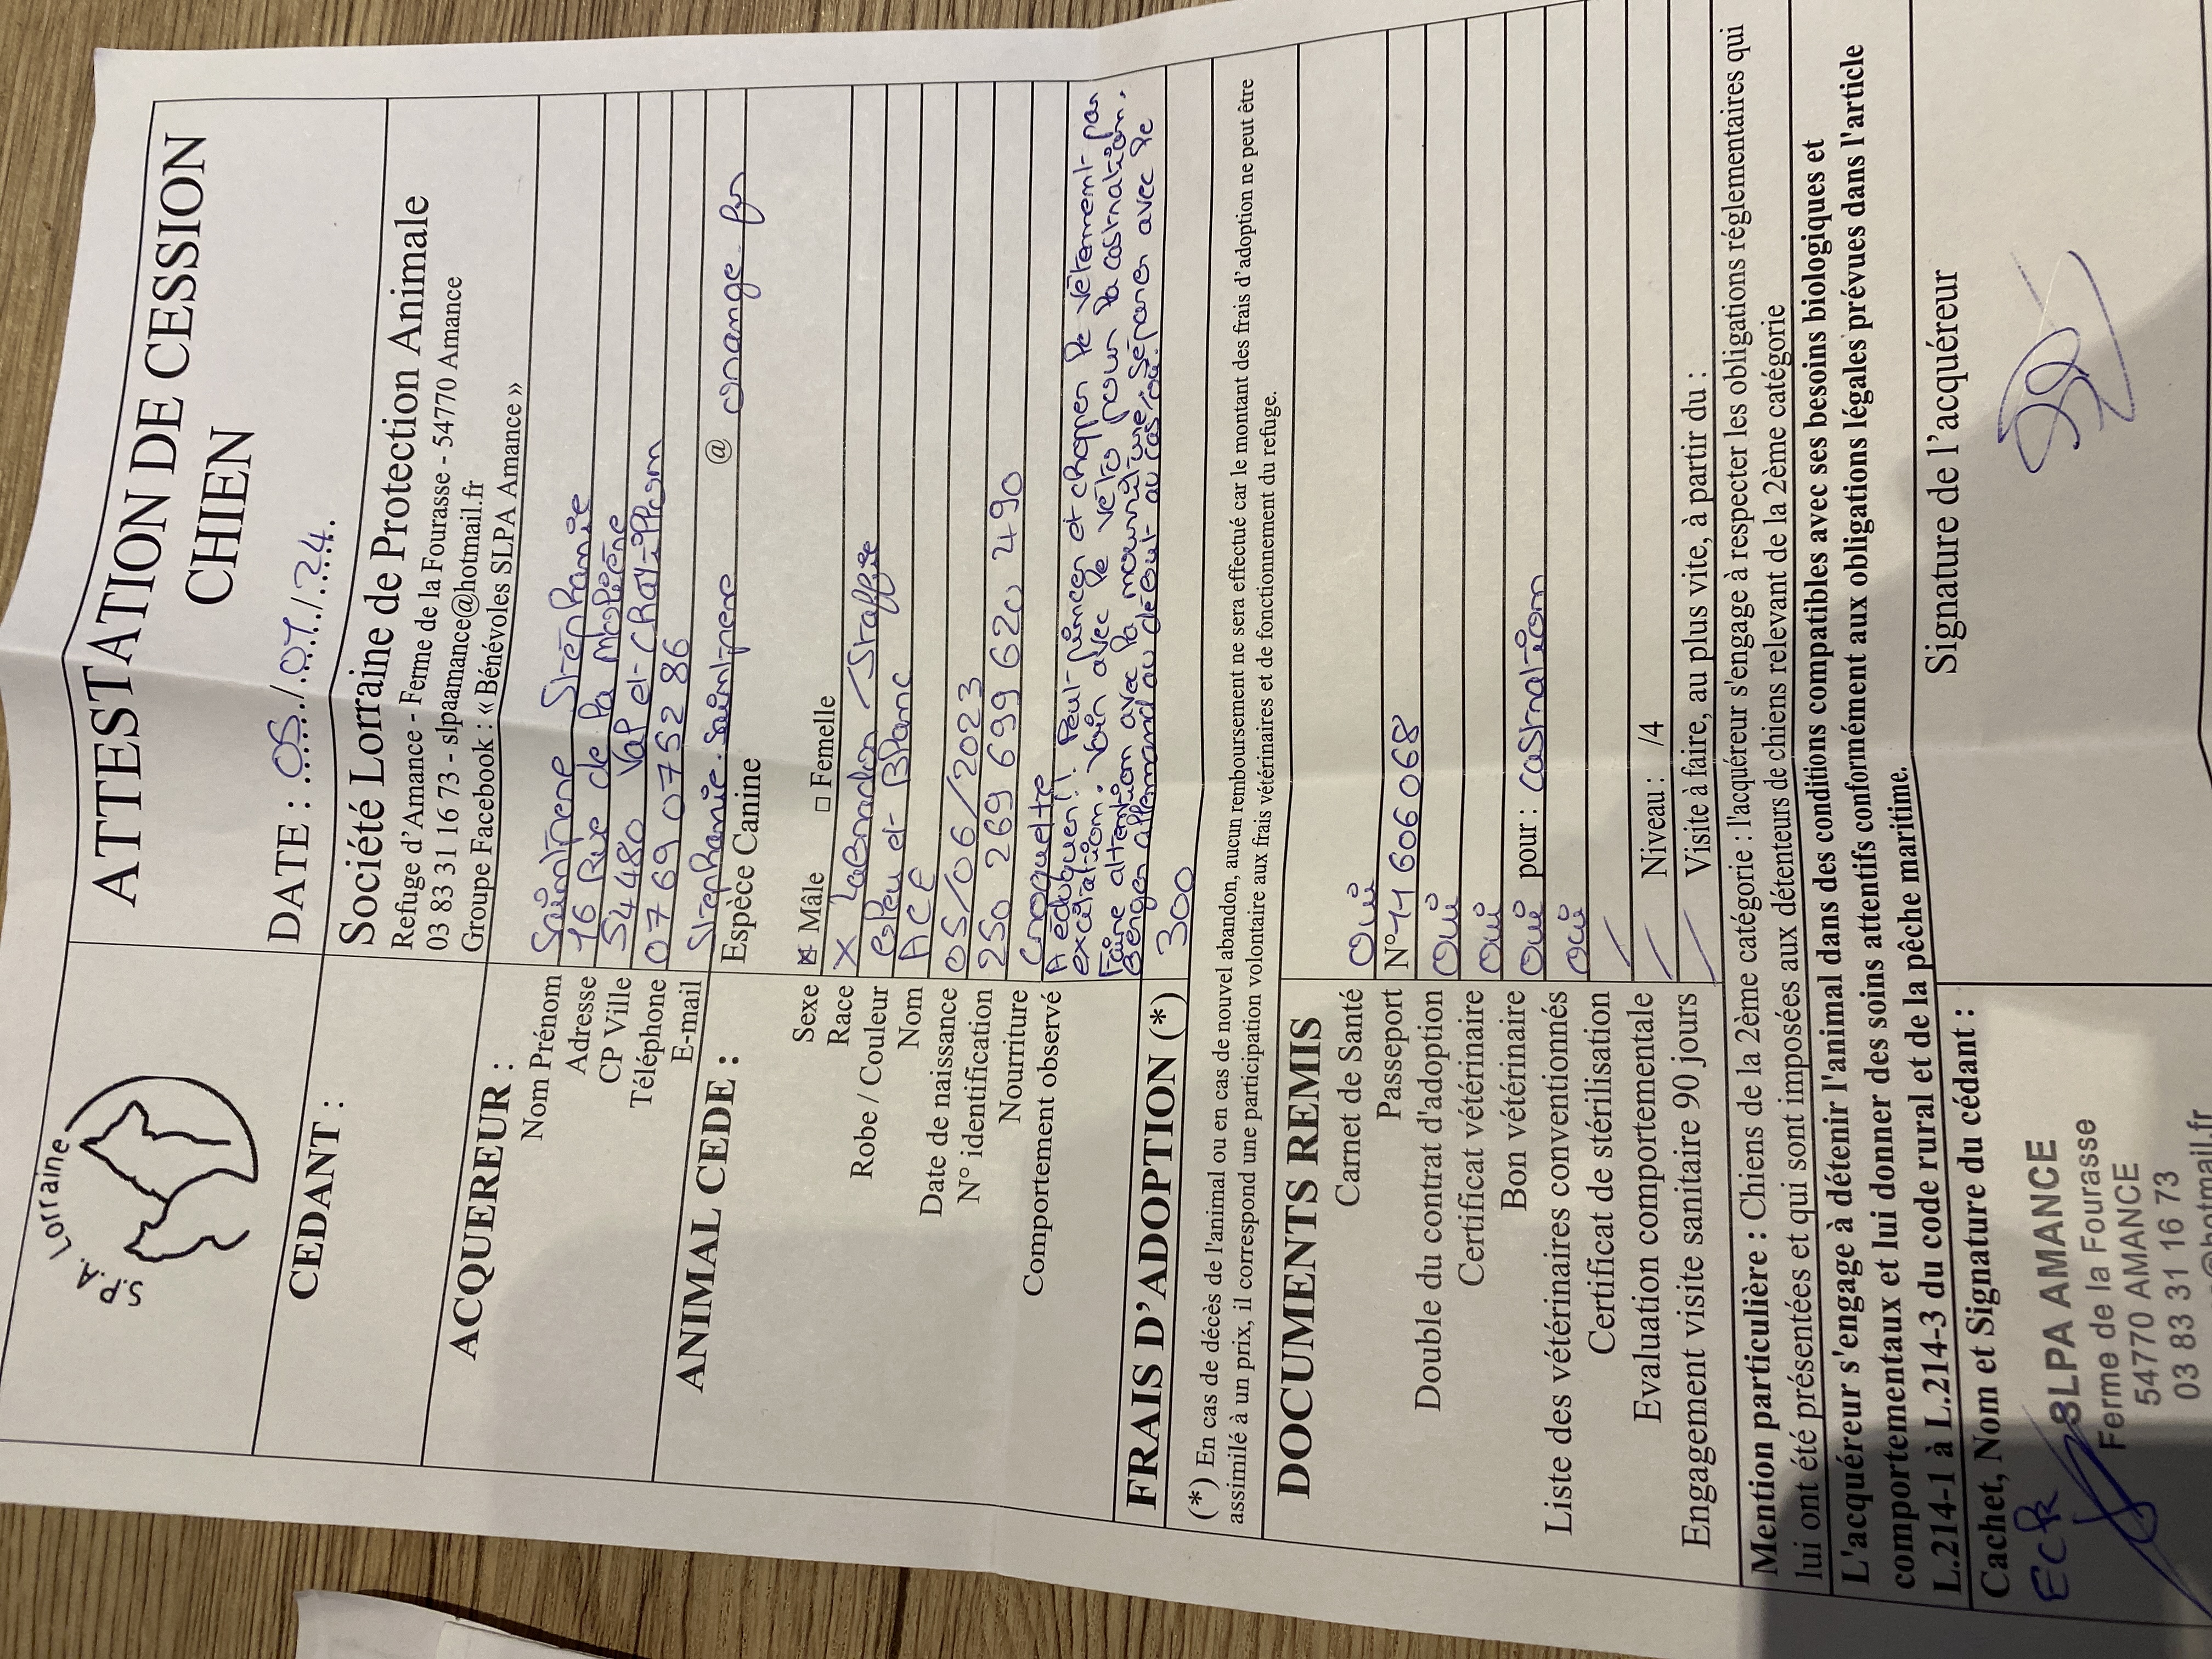 S.P.A. Lorraine
ATTESTATION DE CESSION
CHIEN
DATE : 05/07/24.
CEDANT :
Société Lorraine de Protection Animale
Refuge d'Amance - Ferme de la Fourasse - 54770 Amance
03 83 31 16 73 - slpaamance@hotmail.fr
Groupe Facebook : « Bénévoles SLPA Amance »
ACQUEREUR :
Nom Prénom Saintpere Stéphanie
Adresse 16 Rue de la
CP Ville 54480 Val et Chatillon
Téléphone 07 69 07 52 86
E-mail stephanie.saintpere @ orange.fr
ANIMAL CEDE :
Espèce Canine
Sexe ☒ Mâle ☐ Femelle
Race X Labrador / Staffie
Robe / Couleur Bleu et Blanc
Nom ACE
Date de naissance 05/06/2023
N° identification 250 269 699 620 490
Nourriture Croquette
Comportement observé A éduquer !. Peut pincer et choper le vêtement par
excitation. Voir avec le véto pour la castration.
Faire attention avec la nourriture, séparer avec le
Berger allemand au début au cas où.
FRAIS D'ADOPTION (*) 300
(*) En cas de décès de l'animal ou en cas de nouvel abandon, aucun remboursement ne sera effectué car le montant des frais d'adoption ne peut être
assimilé à un prix, il correspond une participation volontaire aux frais vétérinaires et de fonctionnement du refuge.
DOCUMENTS REMIS
Carnet de Santé Oui
Passeport N° 11606068
Double du contrat d'adoption Oui
Certificat vétérinaire Oui
Bon vétérinaire Oui pour : castration
Liste des vétérinaires conventionnés Oui
Certificat de stérilisation /
Evaluation comportementale / Niveau : /4
Engagement visite sanitaire 90 jours / Visite à faire, au plus vite, à partir du :
Mention particulière : Chiens de la 2ème catégorie : l'acquéreur s'engage à respecter les obligations réglementaires qui
lui ont été présentées et qui sont imposées aux détenteurs de chiens relevant de la 2ème catégorie
L'acquéreur s'engage à détenir l'animal dans des conditions compatibles avec ses besoins biologiques et
comportementaux et lui donner des soins attentifs conformément aux obligations légales prévues dans l'article
L.214-1 à L.214-3 du code rural et de la pêche maritime.
Cachet, Nom et Signature du cédant :
Signature de l'acquéreur
SLPA AMANCE
Ferme de la Fourasse
54770 AMANCE
03 83 31 16 73
@hotmail.fr